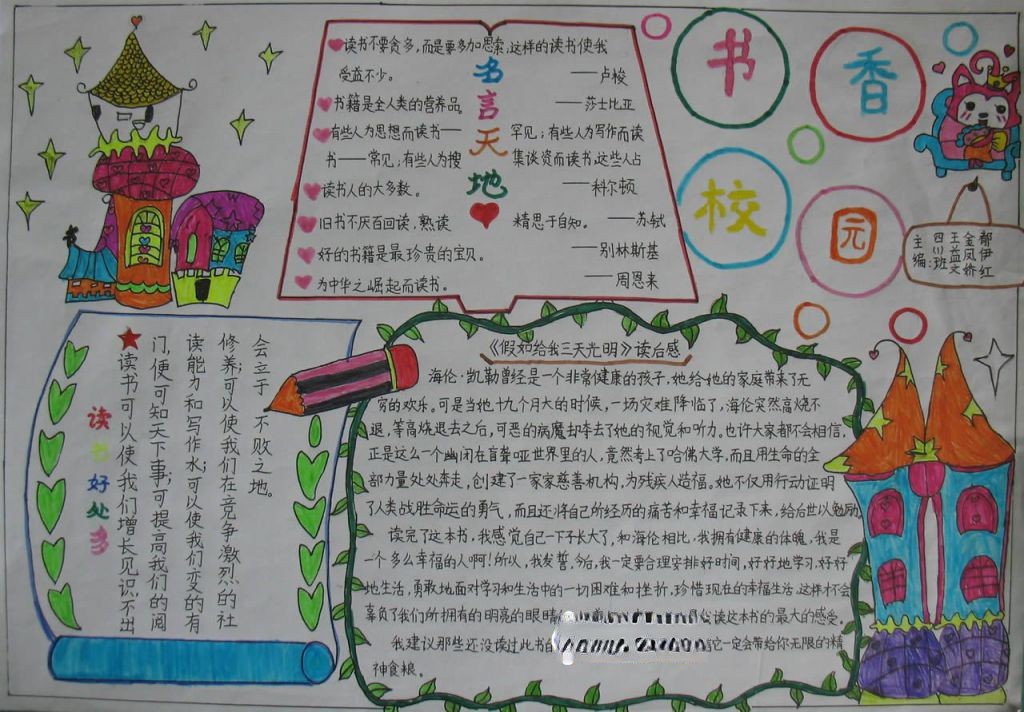 书
香
校
园
主编:
四(1)班
王益文
金凤娇
郗伊红
名言天地
读书不要贪多,而是要多加思索,这样的读书使我
受益不少。 ——卢梭
书籍是全人类的营养品。 ——莎士比亚
有些人为思想而读书——罕见;有些人为写作而读
书——常见;有些人为搜集谈资而读书,这些人占
读书人的大多数。 ——科尔顿
旧书不厌百回读,熟读精思于自知。 ——苏轼
好的书籍是最珍贵的宝贝。 ——别林斯基
为中华之崛起而读书。 ——周恩来
读书好处多
读书可以使我们增长见识,不出
门,便可知天下事;可提高我们的阅
读能力和写作水;可以使我们变的有
修养;可以使我们在竞争激烈的社
会立于不败之地。
《假如给我三天光明》读后感
海伦·凯勒曾经是一个非常健康的孩子,她给她的家庭带来了无
穷的欢乐。可是当她十九个月大的时候,一场灾难降临了,海伦突然高烧不
退,等高烧退去之后,可恶的病魔却夺去了她的视觉和听力。也许大家都不会相信,
正是这么一个幽闭在盲聋哑世界里的人,竟然考上了哈佛大学,而且用生命的全
部力量处处奔走,创建了一家家慈善机构,为残疾人造福。她不仅用行动证明
了人类战胜命运的勇气,而且还将自己所经历的痛苦和幸福记录下来,给后世以勉励
读完了这本书,我感觉自己一下子长大了,和海伦相比,我拥有健康的体魄,我是
一个多么幸福的人啊!所以,我发誓,今后,我一定要合理安排好时间,好好地学习,好好
地生活,勇敢地面对学习和生活中的一切困难和挫折,珍惜现在的幸福生活,这样才不会
辜负了我们所拥有的明亮的眼睛 读这本书的最大的感受。
我建议那些还没读过此书的 它一定会带给你无限的精
神食粮。